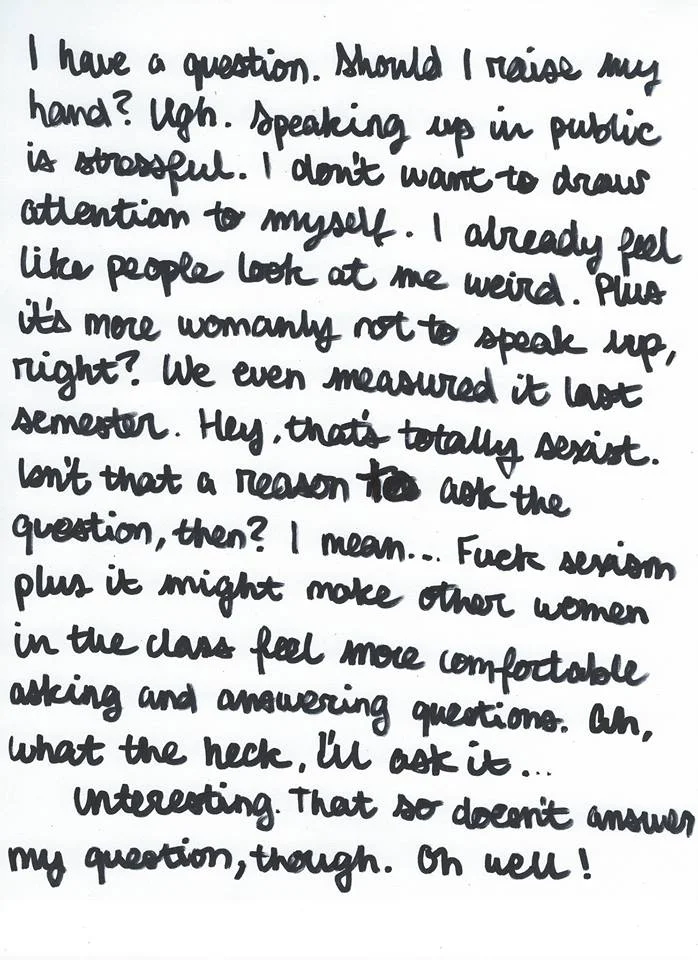 I have a question. Should I raise my
hand? Ugh. Speaking up in public
is stressful. I don't want to draw
attention to myself. I already feel
like people look at me weird. Plus
it's more womanly not to speak up,
right? We even measured it last
semester. Hey, that's totally sexist.
Isn't that a reason to ask the
question, then? I mean... Fuck sexism
plus it might make other women
in the class feel more comfortable
asking and answering questions. Ah,
what the heck, I'll ask it...
Interesting. That so doesn't answer
my question, though. Oh well!